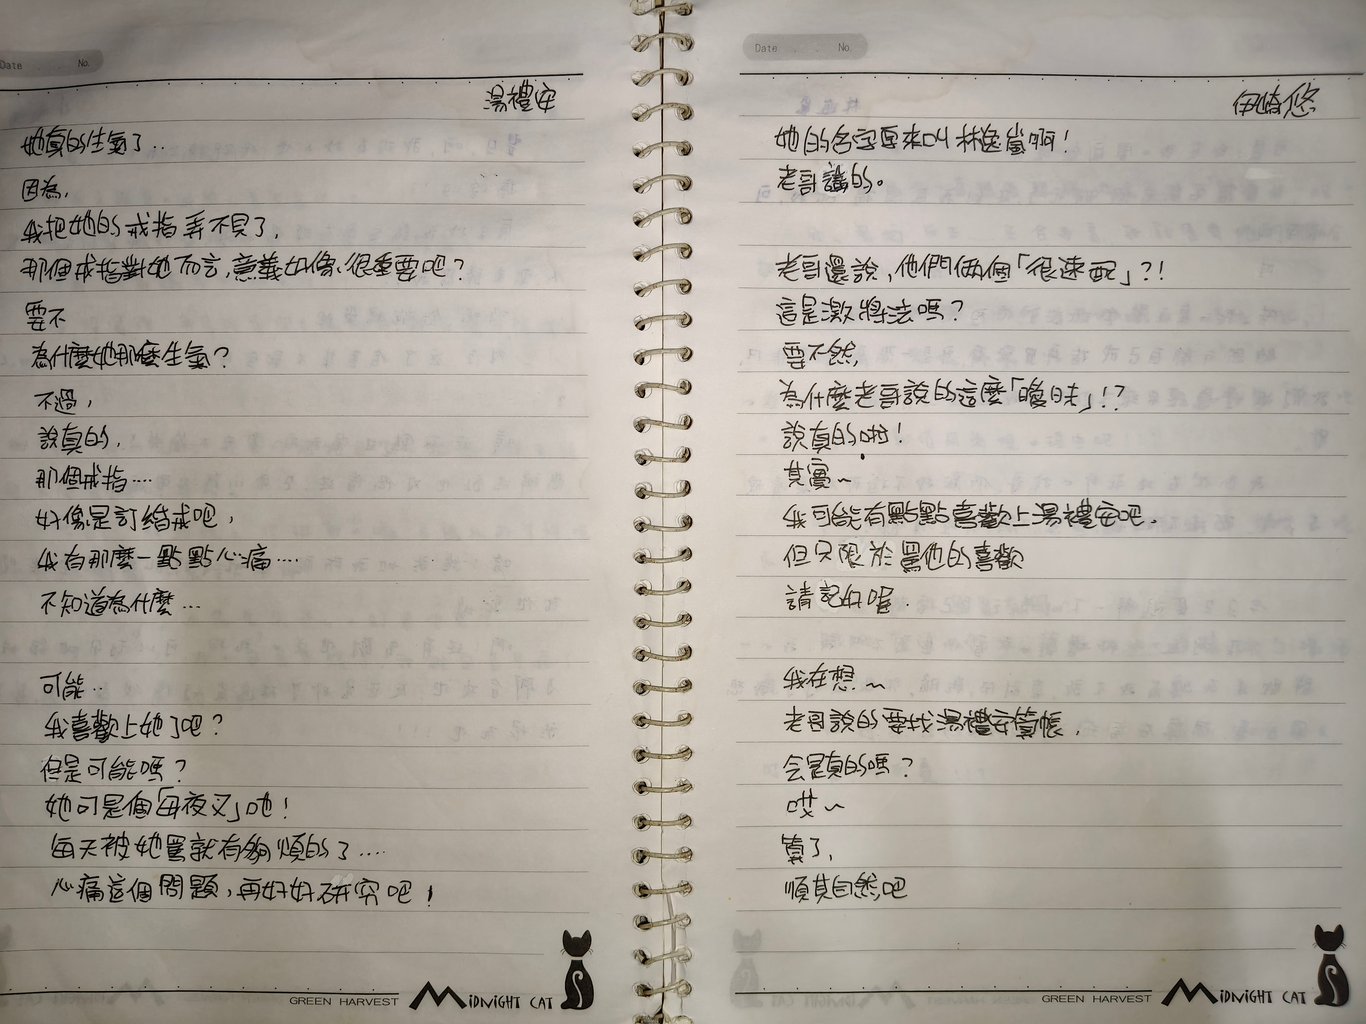 Date . . No.
湯禮安
她真的生氣了..
因為,
我把她的戒指弄不見了,
那個戒指對她而言,意義好像很重要吧?
要不
為什麼她那麼生氣?
不過,
說真的,
那個戒指....
好像是訂婚戒吧,
我有那麼一點點心痛....
不知道為什麼...
可能..
我喜歡上她了吧?
但是可能嗎?
她可是個「母夜叉」吔!
每天被她罵就有夠煩的了....
心痛這個問題,再好好研究吧!
GREEN HARVEST MIDNIGHT CAT
Date . . No.
伊崎悠
她的名字原來叫林逸嵐啊!
老哥講的。
老哥還說,他們倆個「很速配」?!
這是激將法嗎?
要不然,
為什麼老哥說的這麼「曖昧」!?
說真的啦!
其實~
我可能有點點喜歡上湯禮安吧.
但只限於罵他的喜歡
請記好喔.
我在想.~
老哥說的要找湯禮安算帳,
会是真的嗎?
哎~
算了,
順其自然吧
GREEN HARVEST MIDNIGHT CAT